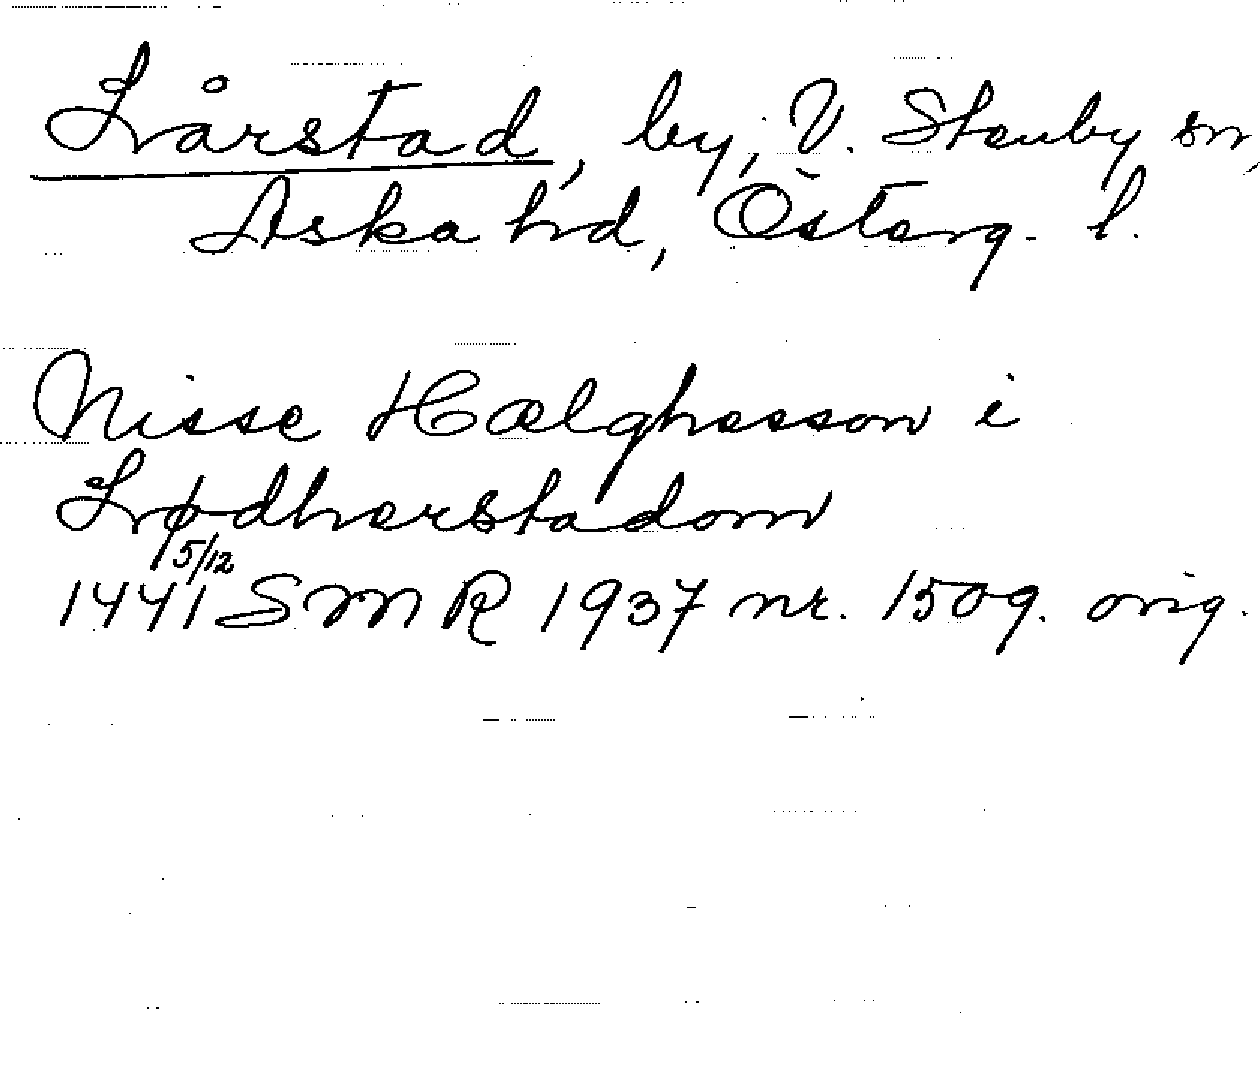 Lårstad, by, V. Stenby sn,
Aska hd, Österg. l.
Nisse Hælghesson i
Lødherstadom
5/12
1441 SMR 1937 nr. 1509. orig.